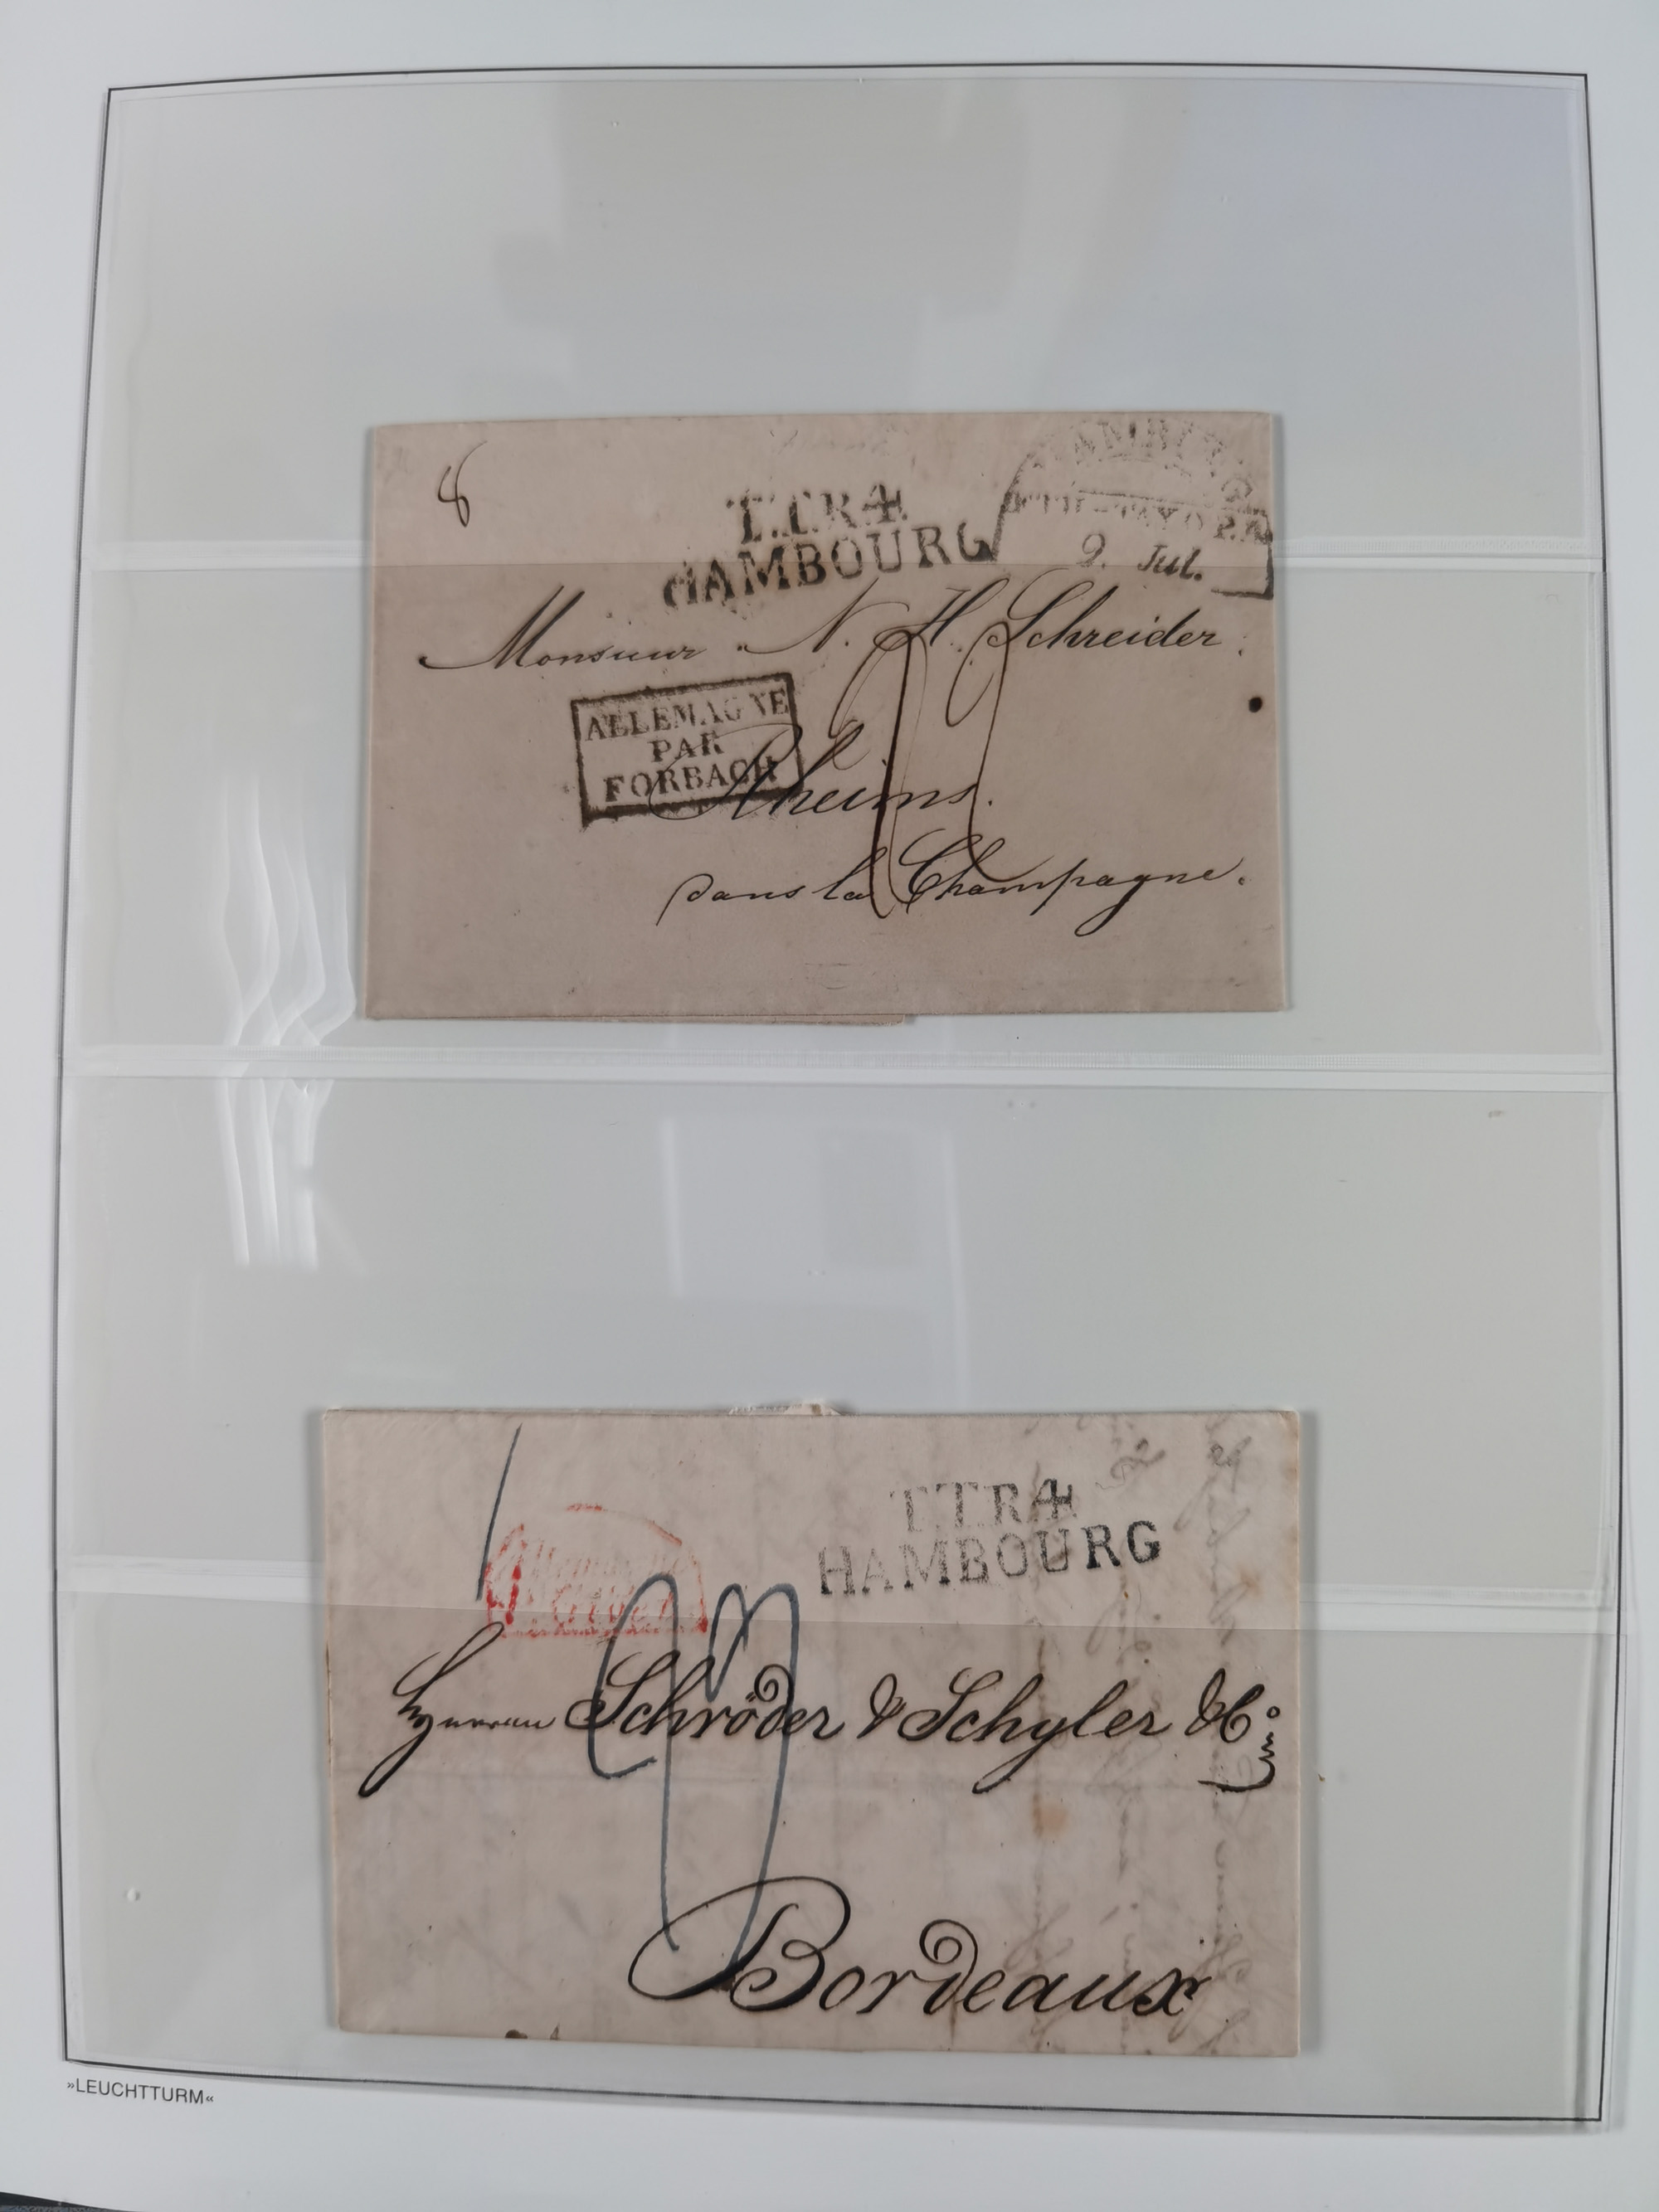 8
T.T.R.4.
HAMBOURG
HAMBURG
9. Jul.
Monsieur N. H. Schreider.
ALLEMAGNE
PAR
FORBACH
Rheims.
dans la Champagne.
T.T.R.4.
HAMBOURG
Schröder & Schyler & Co
Bordeaux
»LEUCHTTURM«